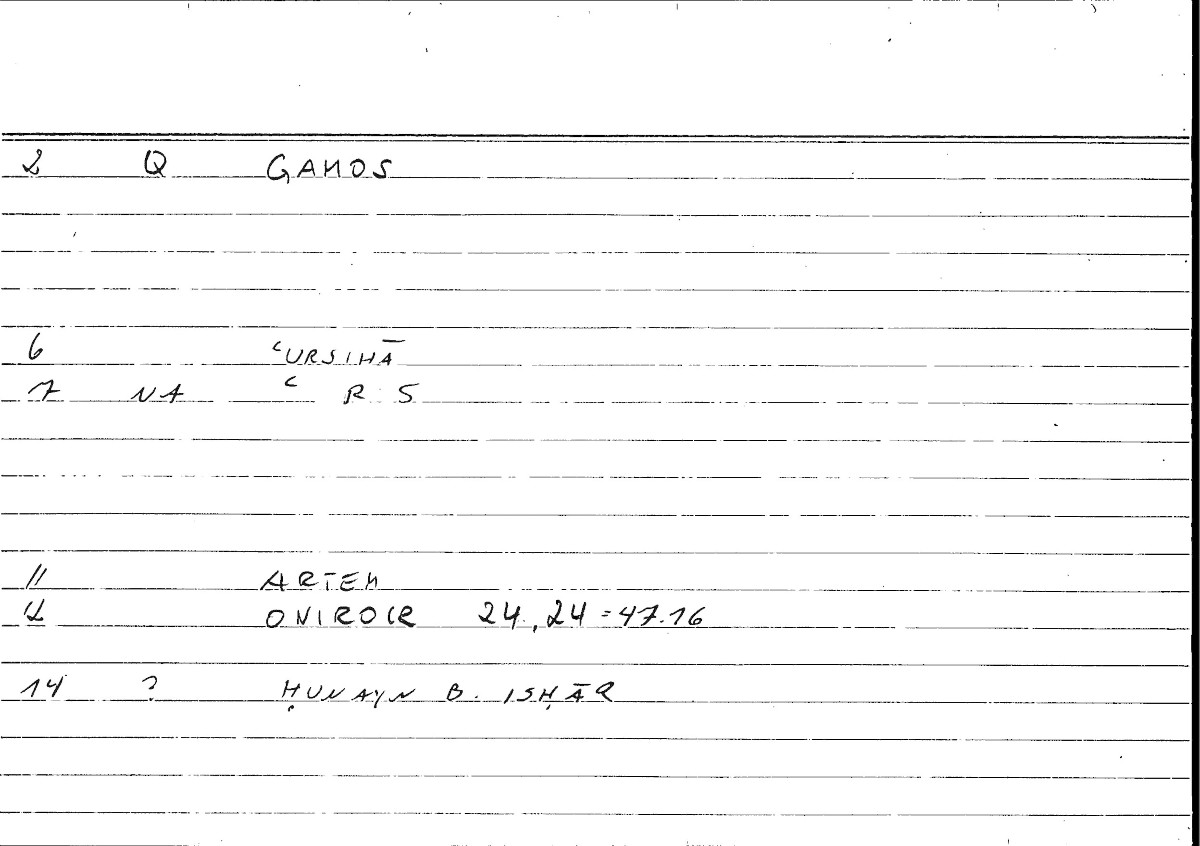 2 Q GAMOS
6 ʿURSIHĀ
7 NA ʿ R S
11 ARTEM
12 ONIROCR 24,24=47.16
14 ? ḤUNAYN B. ISḤĀQ